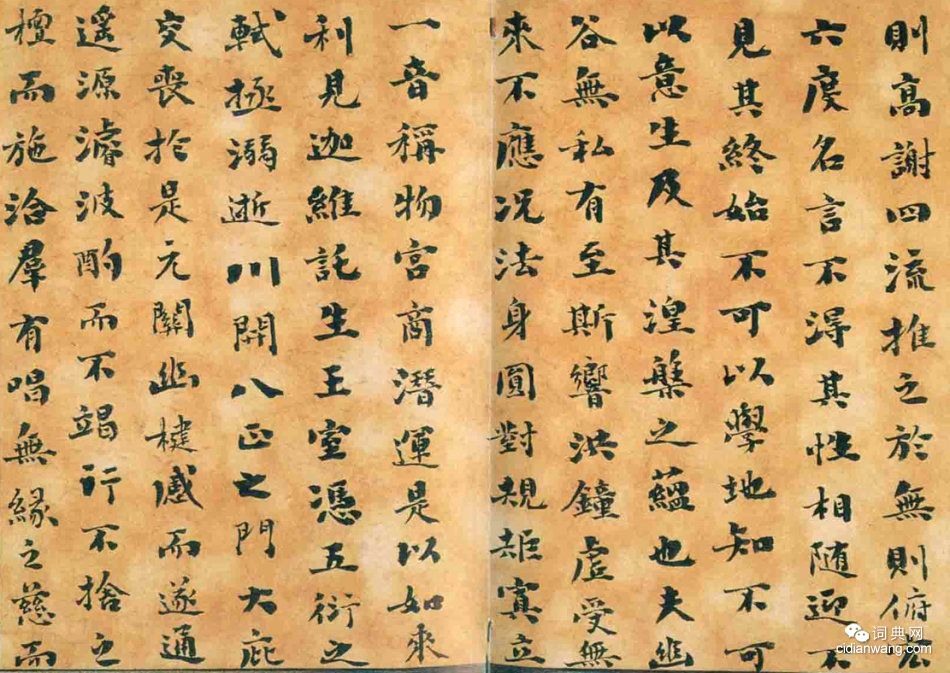 則高謝四流推之於無則俯弘
六度名言不得其性相随迎不
見其終始不可以學地知不可
以意生及其涅槃之蘊也夫幽
谷無私有至斯響洪鐘虛受無
來不應况法身圓對規矩冥立
一音稱物宮商潛運是以如來
利見迦維託生王室憑五衍之
軾拯溺逝川開八正之門大庇
交喪於是元關幽楗感而遂通
遥源濬波酌而不竭行不捨之
檀而施洽羣有唱無緣之慈而
词典网
cidianwang.com